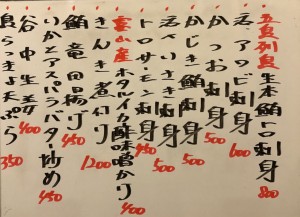 五島列島 生本鮪トロ刺身 800
活〆アワビ刺身 600
かつお刺身 500
かじき鮪刺身 500
活〆いさき刺身 500
トロサーモン刺身 450
富山産 ホタルイカ酢味噌がけ 400
きんき煮付け 1200
鮪竜田揚げ 450
いかとアスパラバター炒め 450
谷中生姜 400
島らっきょ天ぷら 350